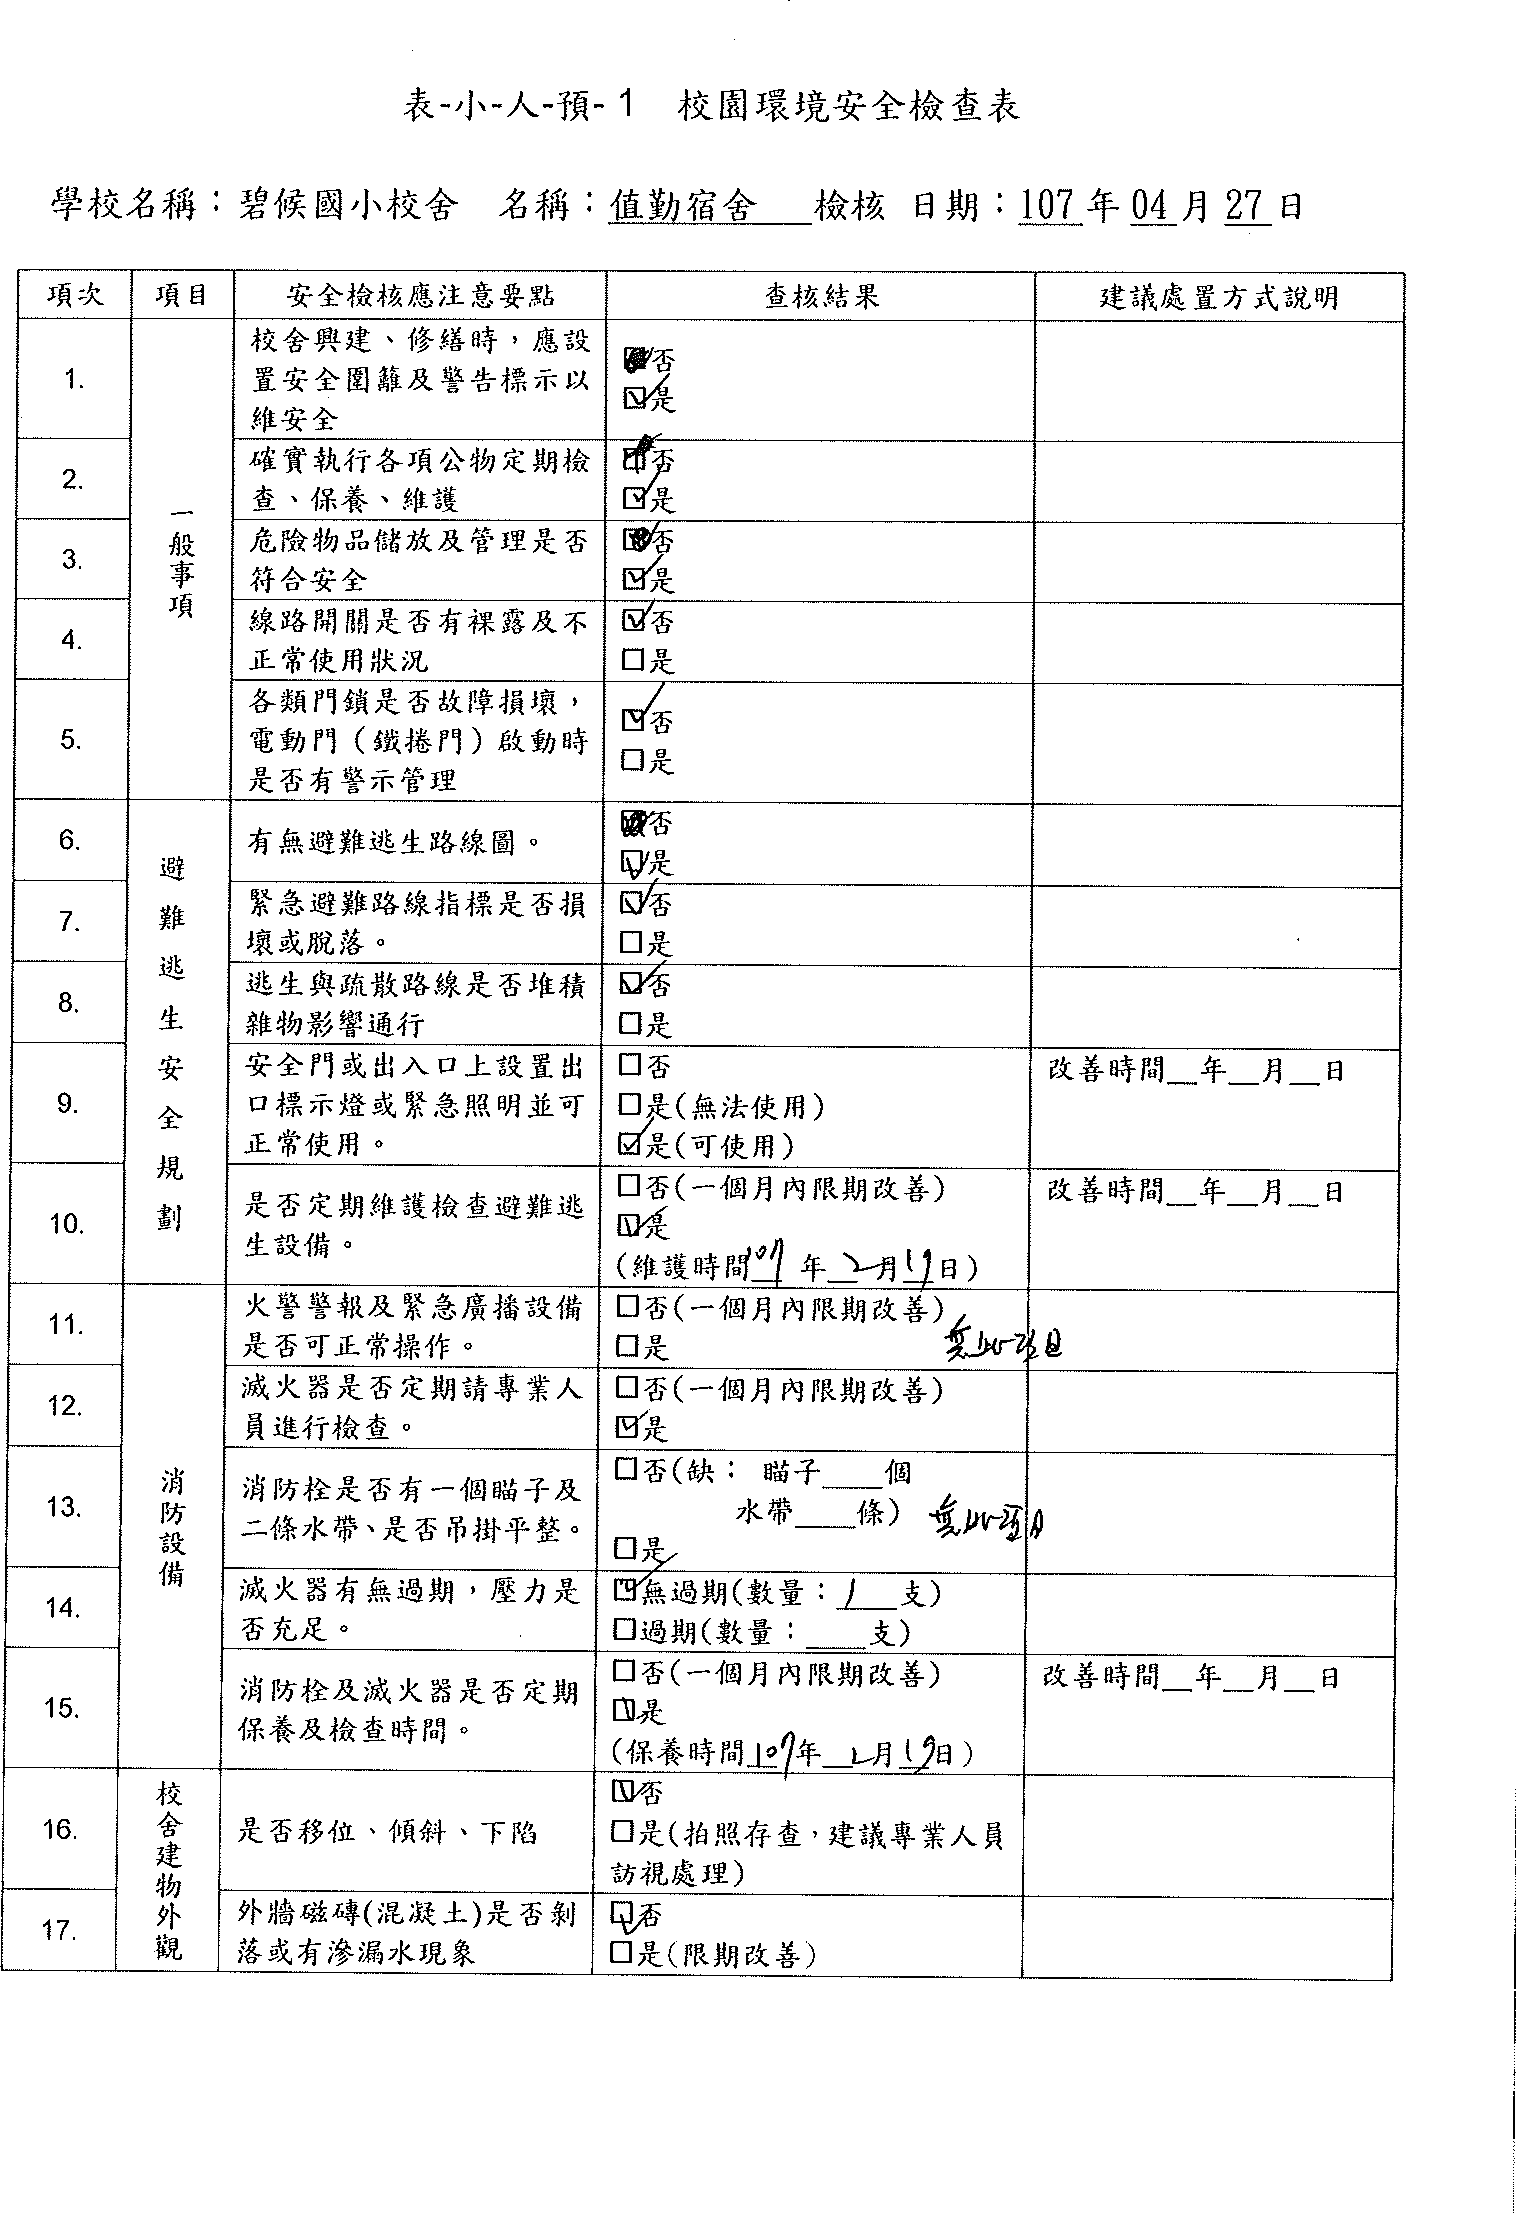 表-小-人-預-1 校園環境安全檢查表
學校名稱：碧候國小校舍 名稱：值勤宿舍 檢核 日期：107年04月27日
項次 項目 安全檢核應注意要點 查核結果 建議處置方式說明
一般事項
1.
校舍興建、修繕時，應設
置安全圍籬及警告標示以
維安全
否
☑是
2.
確實執行各項公物定期檢
查、保養、維護
否
☑是
3.
危險物品儲放及管理是否
符合安全
否
☑是
4.
線路開關是否有裸露及不
正常使用狀況
☑否
□是
5.
各類門鎖是否故障損壞，
電動門（鐵捲門）啟動時
是否有警示管理
☑否
□是
避難逃生安全規劃
6.
有無避難逃生路線圖。
否
☑是
7.
緊急避難路線指標是否損
壞或脫落。
☑否
□是
8.
逃生與疏散路線是否堆積
雜物影響通行
☑否
□是
9.
安全門或出入口上設置出
口標示燈或緊急照明並可
正常使用。
□否
□是(無法使用)
☑是(可使用)
改善時間__年__月__日
10.
是否定期維護檢查避難逃
生設備。
□否(一個月內限期改善)
☑是
(維護時間107年2月19日)
改善時間__年__月__日
消防設備
11.
火警警報及緊急廣播設備
是否可正常操作。
□否(一個月內限期改善)
□是
無此項目
12.
滅火器是否定期請專業人
員進行檢查。
□否(一個月內限期改善)
☑是
13.
消防栓是否有一個瞄子及
二條水帶、是否吊掛平整。
□否(缺： 瞄子____個
水帶____條)
□是
無此項目
14.
滅火器有無過期，壓力是
否充足。
☑無過期(數量：1支)
□過期(數量：____支)
15.
消防栓及滅火器是否定期
保養及檢查時間。
□否(一個月內限期改善)
☑是
(保養時間107年2月19日)
改善時間__年__月__日
校舍建物外觀
16.
是否移位、傾斜、下陷
☑否
□是(拍照存查，建議專業人員
訪視處理)
17.
外牆磁磚(混凝土)是否剝
落或有滲漏水現象
☑否
□是(限期改善)